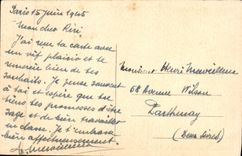 Paris 15 juin 1905
Mon cher Riri,
J'ai reçu ta carte avec
un vif plaisir et te
remercie bien de tes
souhaits. Je pense souvent
à toi et espère que tu
tiens tes promesses d'être
sage et de bien travailler
en classe. Je t'embrasse
bien affectueusement
Monsieur Henri
68 Avenue Wilson
Parthenay
(Deux Sèvres)